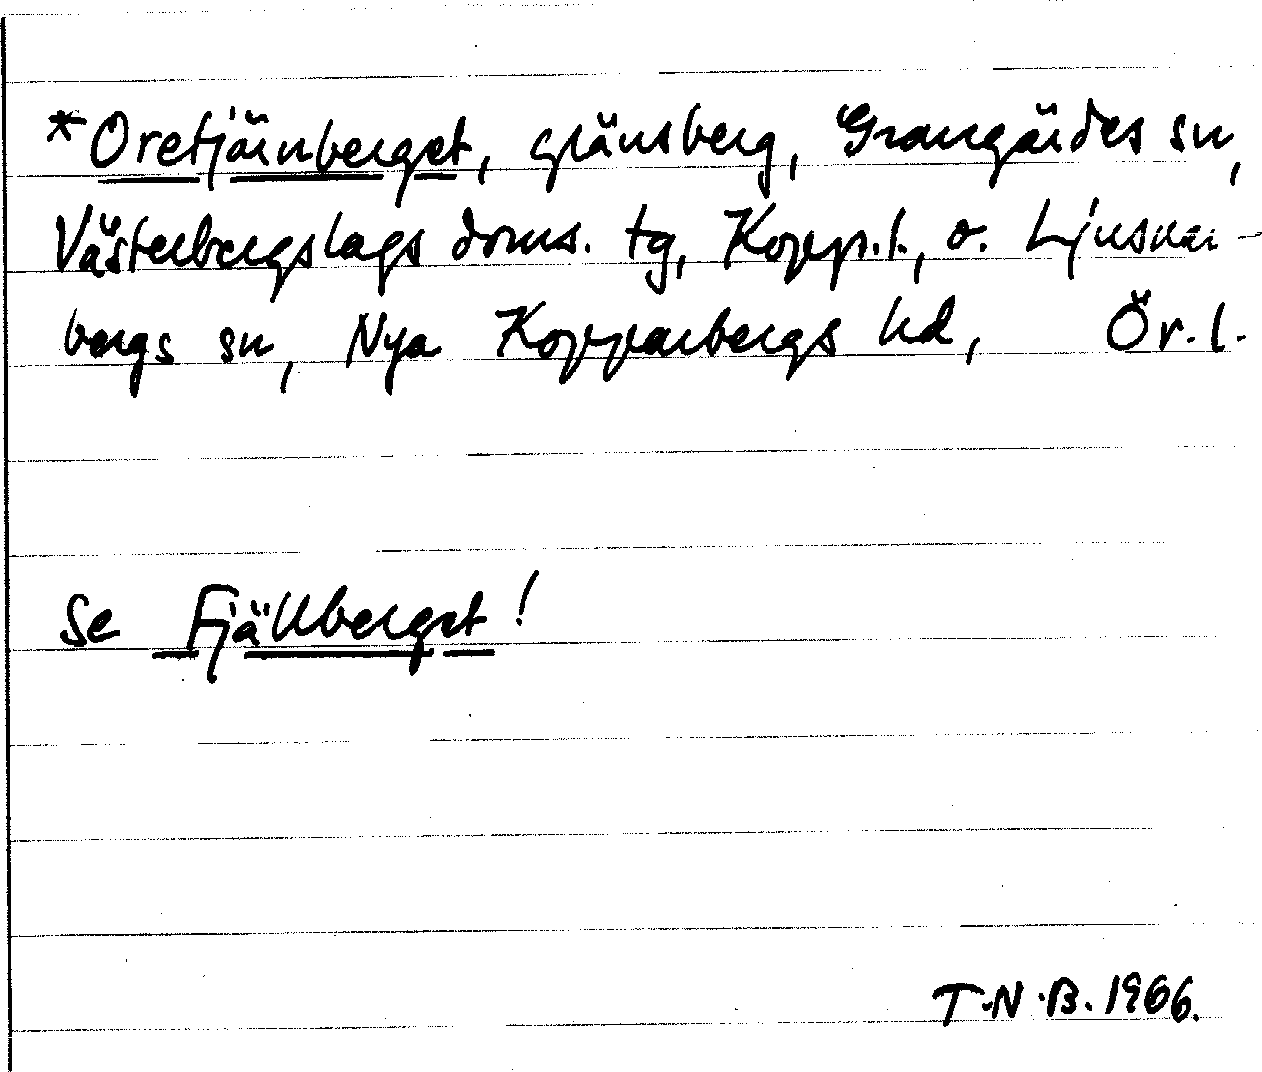 *Oretjärnberget, gränsberg, Grangärdes sn,
Västerbergslags doms. tg, Kopp.l., o. Ljusnar-
bergs sn, Nya Kopparbergs hd, Ör.l.
Se Fjällberget!
T.N.B. 1966.